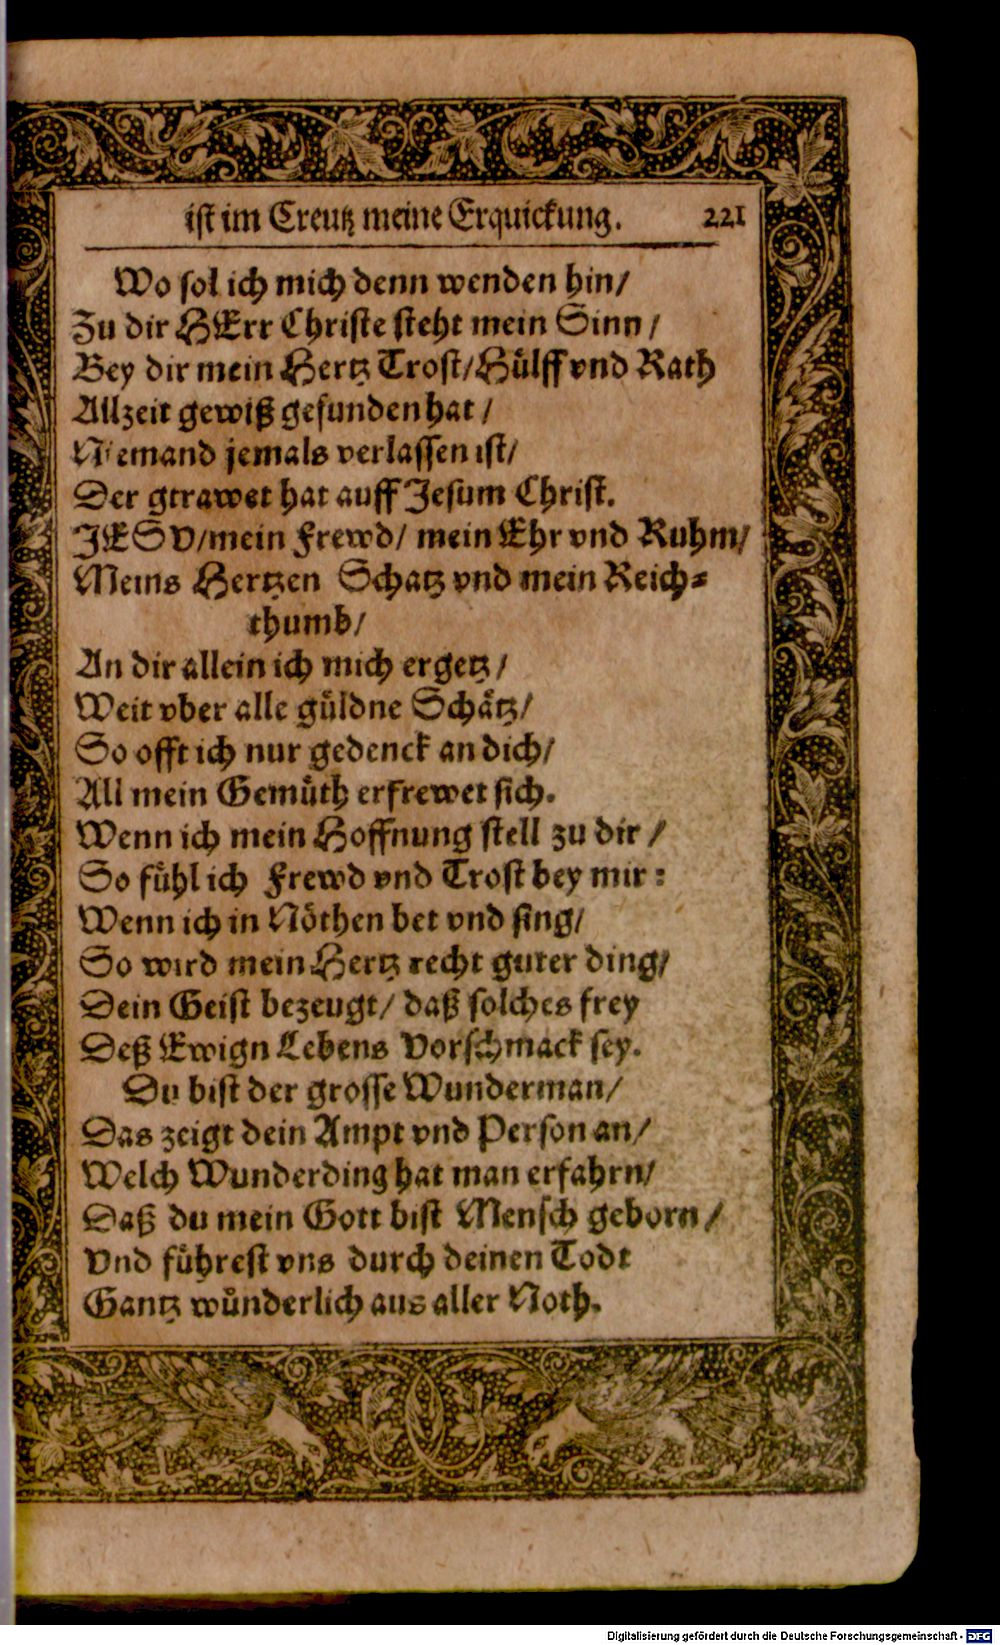 ist im Creutz meine Erquickung. 221
Wo sol ich mich denn wenden hin/
Zu dir HErr Christe steht mein Sinn /
Bey dir mein Hertz Trost/Hülff vnd Rath
Allzeit gewiß gefunden hat /
Niemand jemals verlassen ist/
Der gtrawet hat auff Jesum Christ.
JESV/mein Frewd/ mein Ehr vnd Ruhm/
Meins Hertzen Schatz vnd mein Reich-
thumb/
An dir allein ich mich ergetz /
Weit vber alle güldne Schätz/
So offt ich nur gedenck an dich/
All mein Gemüth erfrewet sich.
Wenn ich mein Hoffnung stell zu dir /
So fühl ich Frewd vnd Trost bey mir:
Wenn ich in Nöthen bet vnd sing/
So wird mein Hertz recht guter ding/
Dein Geist bezeugt/ daß solches frey
Deß Ewign Lebens Vorschmack sey.
Du bist der grosse Wunderman/
Das zeigt dein Ampt vnd Person an/
Welch Wunderding hat man erfahrn/
Daß du mein Gott bist Mensch geborn /
Vnd führest vns durch deinen Todt
Gantz wünderlich aus aller Noth.
Digitalisierung gefördert durch die Deutsche Forschungsgemeinschaft - DFG